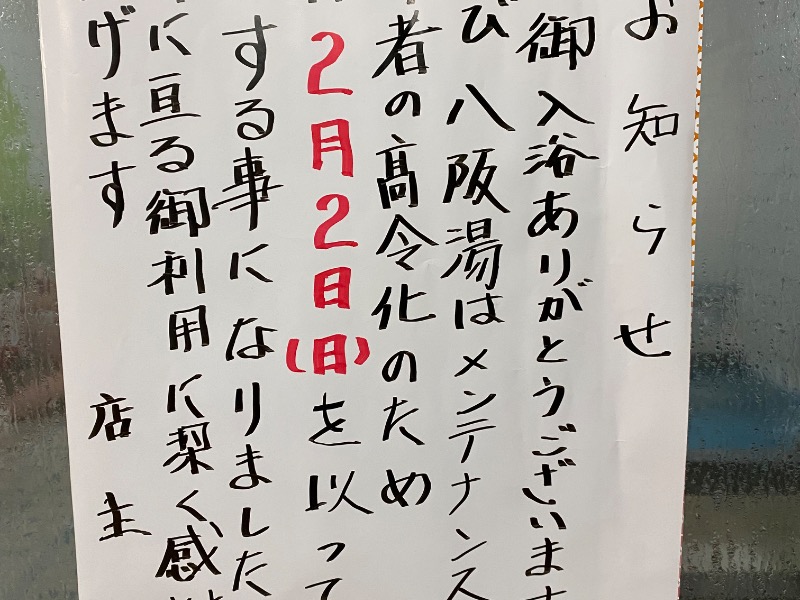 お知らせ
御入浴ありがとうございます
び八阪湯はメンテナンス
者の高令化のため
2月2日(日)を以って
する事になりました
に亘る御利用に梨く感
げます 店主